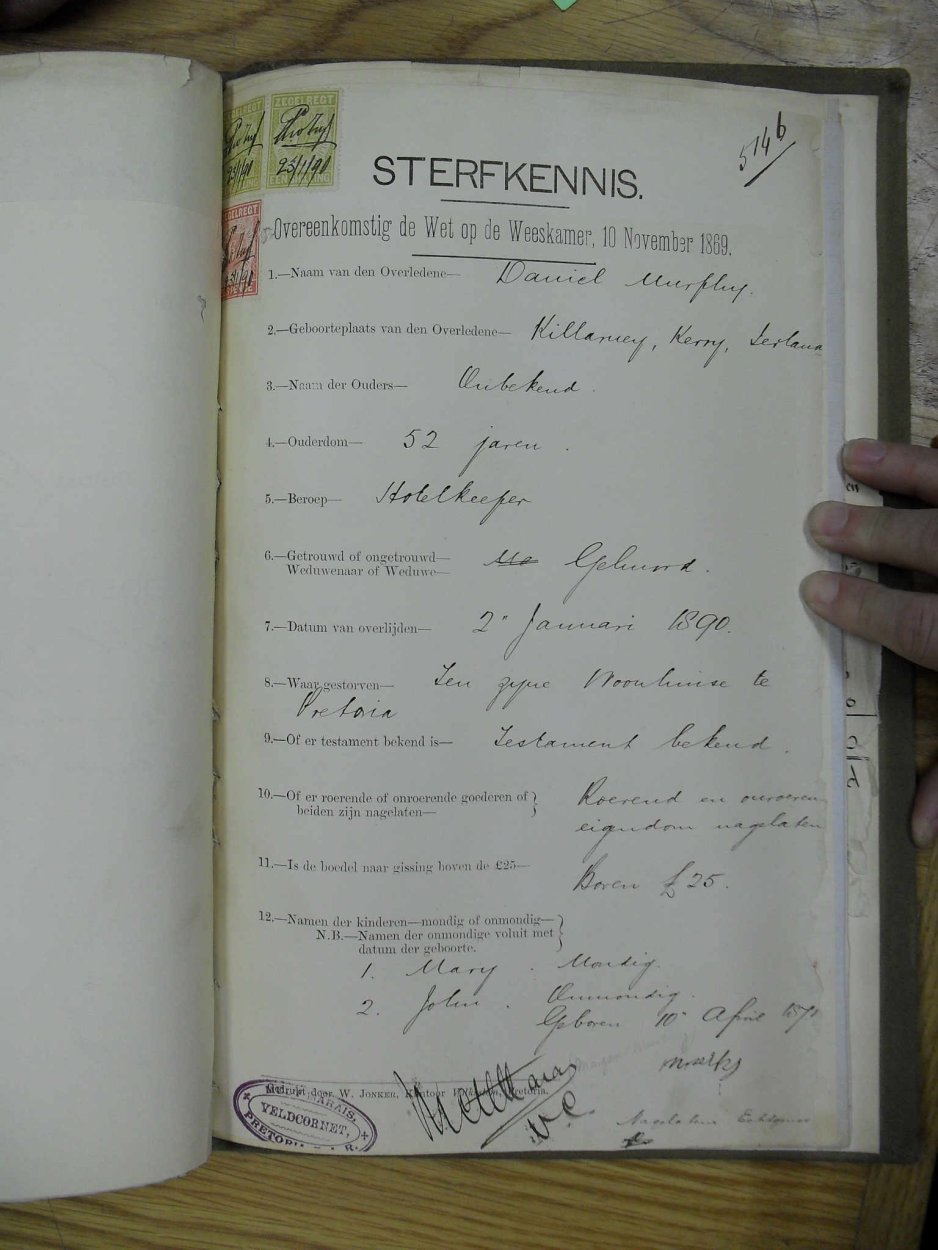 ZEGELREGT
23/1/91
5146
STERFKENNIS.
Overeenkomstig de Wet op de Weeskamer, 10 November 1869.
1.—Naam van den Overledene— Daniel Murphy.
2.—Geboorteplaats van den Overledene— Killarney, Kerry, Ierland
3.—Naam der Ouders— Onbekend.
4.—Ouderdom— 52 jaren.
5.—Beroep— Hotelkeeper
6.—Getrouwd of ongetrouwd—
Weduwenaar of Weduwe— Gehuwd.
7.—Datum van overlijden— 2e Januari 1890.
8.—Waar gestorven— Ten zyne Woonhuise te
Pretoria
9.—Of er testament bekend is— Testament bekend.
10.—Of er roerende of onroerende goederen of
beiden zijn nagelaten— Roerend en onroeren
eigendom nagelaten
11.—Is de boedel naar gissing boven de £25— Boven £25.
12.—Namen der kinderen—mondig of onmondig—
N.B.—Namen der onmondige voluit met
datum der geboorte.
1. Mary. Mondig.
2. John. Onmondig.
Geboren 10e April
Gedrukt door W. JONKER, Kantoor Pretoria.
MARAIS,
VELDCORNET,
PRETORIA
Nagelaten